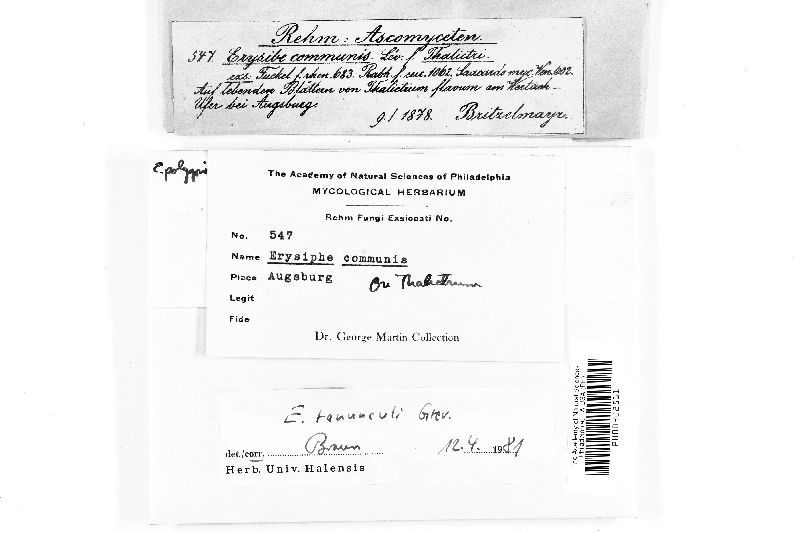 Rehm: Ascomyceten.
547. Erysibe communis. Lév. f. Thalictri.
exs. Fuckel f. rhen. 683. Rabh. f. eur. 1062. Saccardo myc. Ven. 602.
Auf lebenden Blättern von Thalictrum flavum am Wertach-
Ufer bei Augsburg.
9/ 1878. Britzelmayr.
The Academy of Natural Sciences of Philadelphia
MYCOLOGICAL HERBARIUM
Rehm Fungi Exsiccati No.
No. 547
Name Erysiphe communis
Place Augsburg On Thalictrum
Legit
Fide
Dr. George Martin Collection
E. ranunculi Grev.
det./corr. Braun 12.4. 1981
Herb. Univ. Halensis